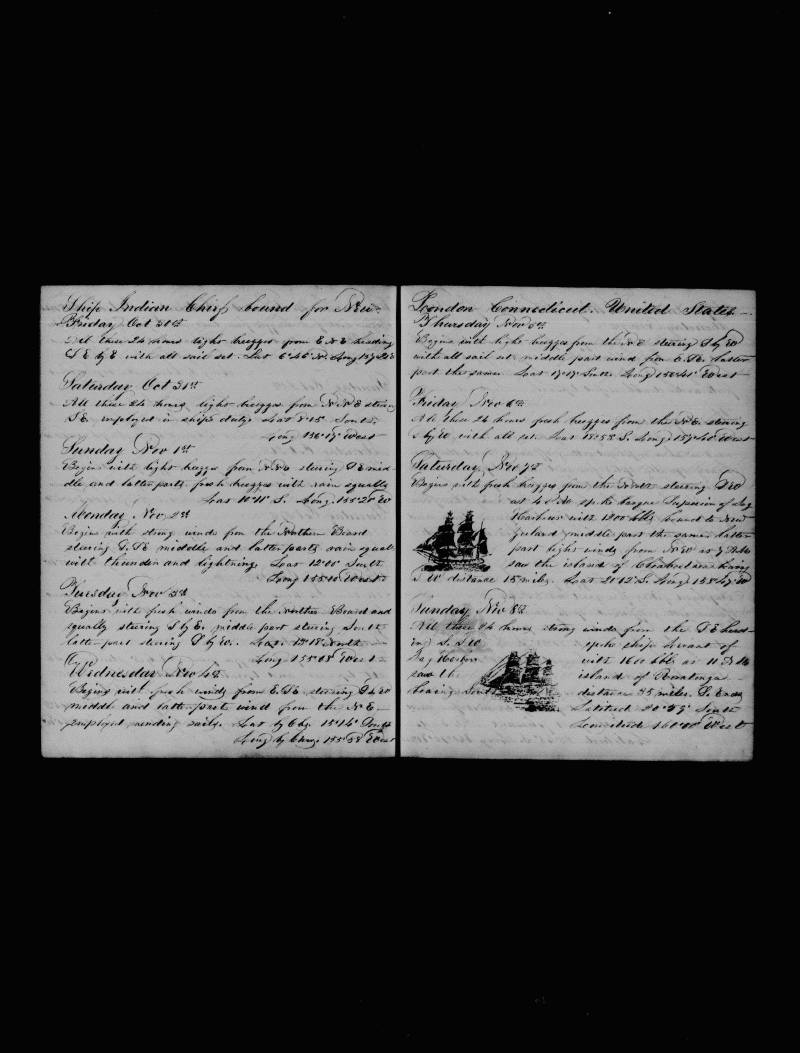 Ship Indian Chief bound for New
Friday Oct 30th
All these 24 hours light breezes from E N E heading
S E by E with all sail set. Lat 6°46' N. Long 157°21'
Saturday Oct 31st
All these 24 hours light breezes from N N E steering
S E employed in ships duty Lat 8°15 South
Long 156°17' West
Sunday Nov 1st
Begins with light breezes from steering S E mid-
dle and latter parts fresh breezes with rain squally
Lat 10°11' S. Long. 155°20' W
Monday Nov 2nd
Begins with strong winds from the Northern Board
steering S. S E middle and latter parts rain squalls
with thunder and lightning Lat 12°00 South
Long 155°10 West
Tuesday Nov 3rd
Begins with fresh winds from the Northern Board and
squally steering S by E. middle part steering South
latter part steering S by W. Lat. 13°18' South
Long 155°18' West
Wednesday Nov 4th
Begins with fresh winds from E. S E steering S by W
middle and latter part wind from the N E
Employed mending sails. Lat by Chr. 15°14' South
Long by Chron 155°58' West
London Connecticut. United States
Thursday Nov 5th
Begins with light breezes from the N E steering S by W
with all sail set middle part wind from E. S E. latter
part the same Lat 17°17' South Long 156°41' West
Friday Nov 6th
All these 24 hours fresh breezes from the N. E. steering
S by W with all set. Lat 18°58' S. Long 157°40' West
Saturday Nov 7th
Begins with fresh breezes from the North steering S W
at 4 P.M. spoke barque Superior of Sag
Harbour with 1200 bbls bound to New
Zealand middle part the same. latter
part light winds from N W at 7 A.M.
saw the island of bearing
S W distance 15 miles. Lat 20°12' S. Long. 158°47' W
Sunday Nov 8th
All these 24 hours strong winds from the S E head-
ing S. S W spoke ship of
Sag Harbor with 1600 bbls at 11 A M
saw the island of Roratonga
bearing South distance 35 miles. So Ends
Latitude 20°49' South
Longitude 160°00' West